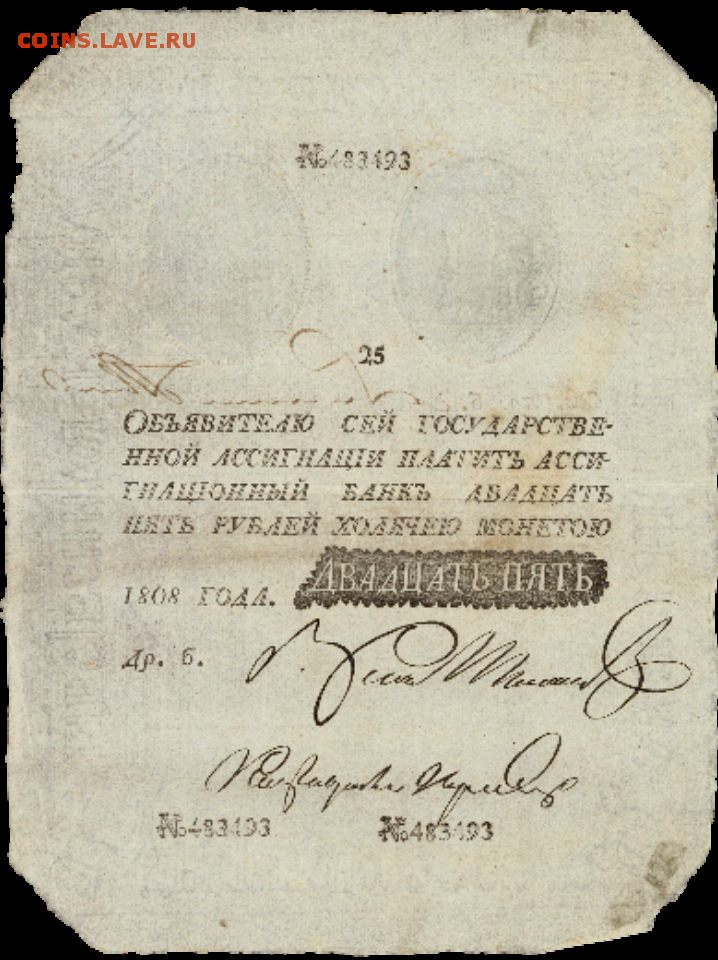 COINS.LAVE.RU
№483493
25
ОБЪЯВИТЕЛЮ СЕЙ ГОСУДАРСТВЕ-
ННОЙ АССИГНАЦІИ ПЛАТИТЪ АССИ-
ГНАЦІОННЫЙ БАНКЪ ДВАДЦАТЬ
ПЯТЬ РУБЛЕЙ ХОДЯЧЕЮ МОНЕТОЮ
1808 ГОДА. ДВАДЦАТЬ ПЯТЬ
др. б.
№483493 №483493